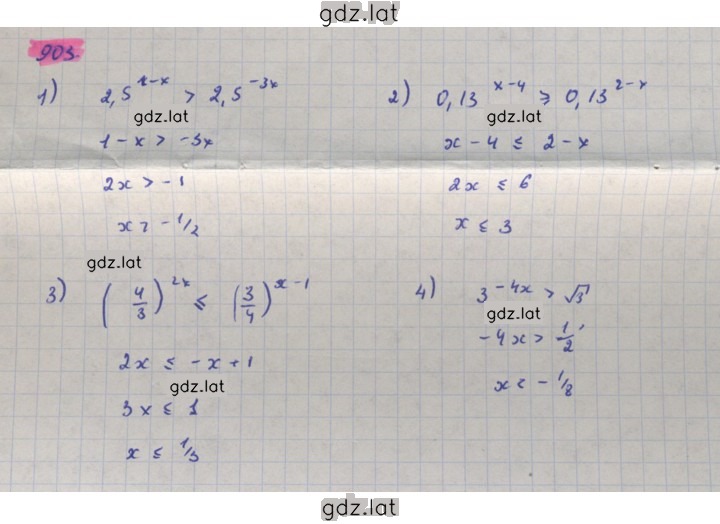 gdz.lat
903.
1) 2,5^{1-x} > 2,5^{-3x}
gdz.lat
1-x > -3x
2x > -1
x > -1/2
2) 0,13^{x-4} ⩾ 0,13^{2-x}
gdz.lat
x-4 ≤ 2-x
2x ≤ 6
x ≤ 3
gdz.lat
3) (4/3)^{2x} ≤ (3/4)^{x-1}
2x ≤ -x+1
gdz.lat
3x ≤ 1
x ≤ 1/3
4) 3^{-4x} > √3
gdz.lat
-4x > 1/2
x < -1/8
gdz.lat